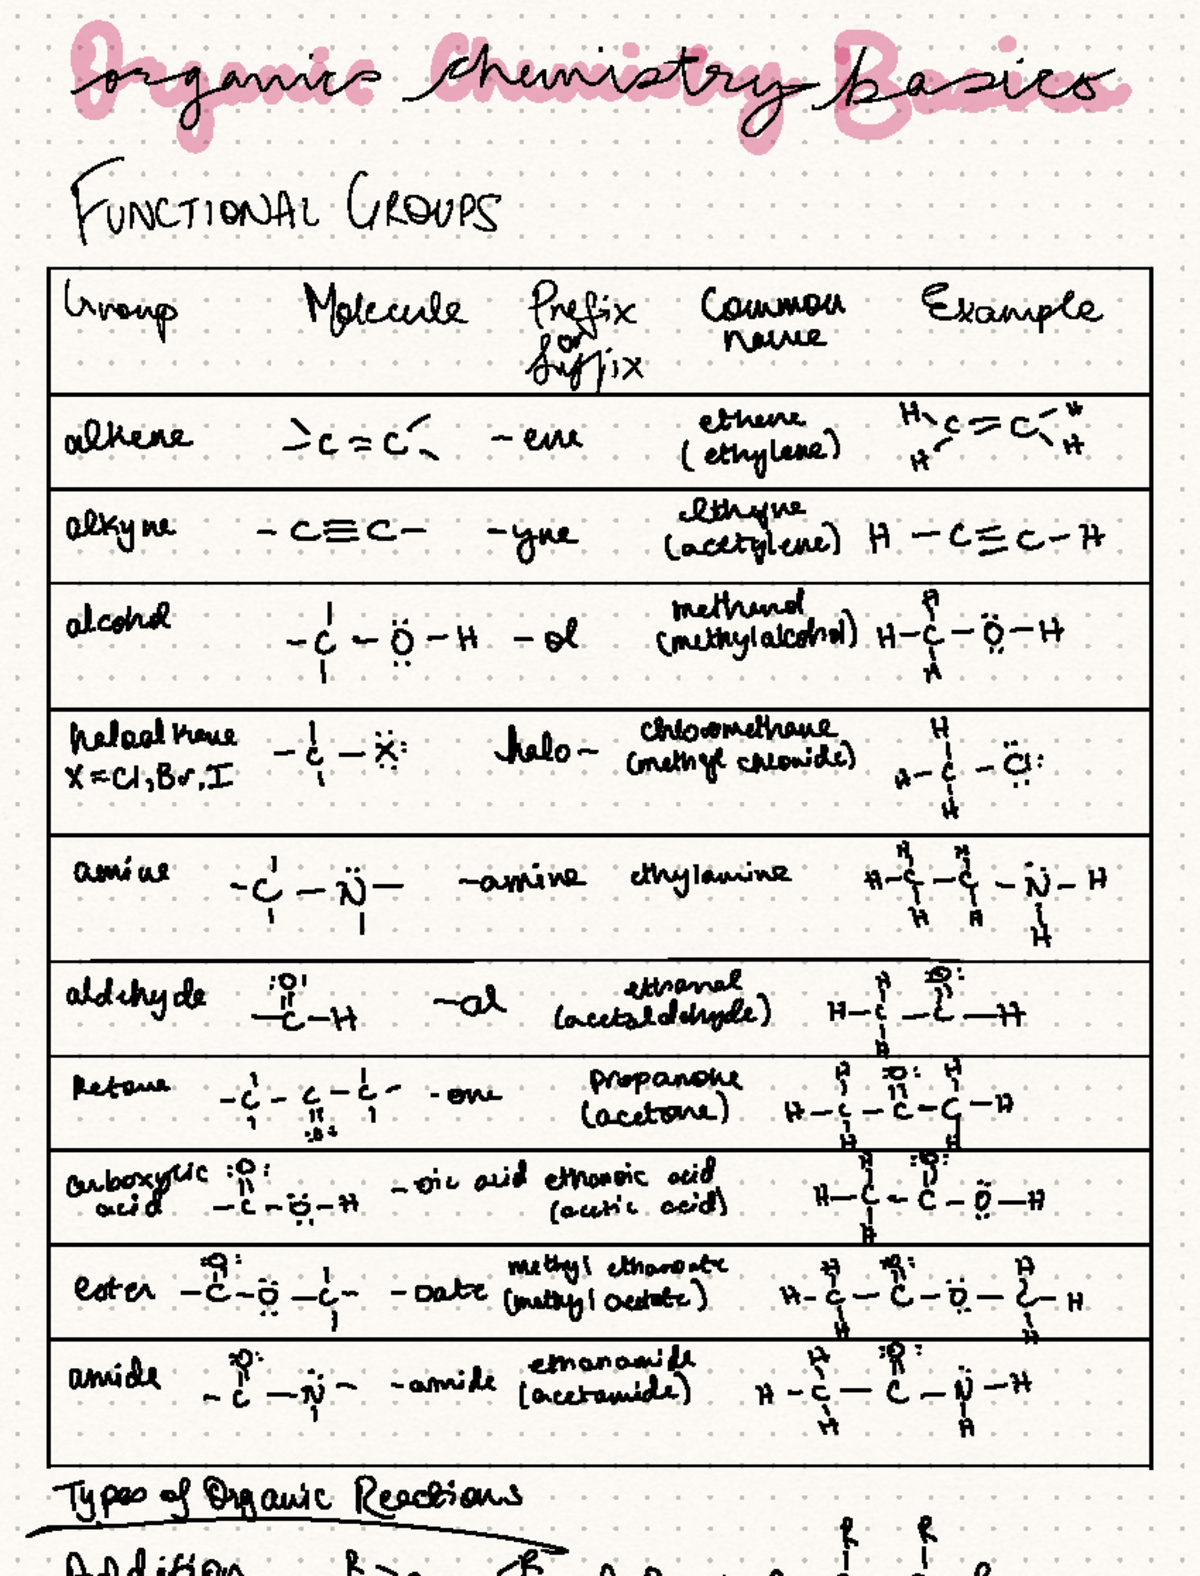 Organic Chemistry Basics
FUNCTIONAL GROUPS
Group Molecule Prefix or Suffix Common name Example
alkene C=C -ene ethene (ethylene) H H C=C H H
alkyne -C≡C- -yne ethyne (acetylene) H-C≡C-H
alcohol -C-Ö-H -ol methanol (methyl alcohol) H-C-Ö-H H H
haloalkane X=Cl,Br,I -C-Ẍ: halo- chloromethane (methyl chloride) H H-C-Cl: H
amine -C-N- -amine ethylamine H-C-C-N-H H H H H H
aldehyde :O: -C-H -al ethanal (acetaldehyde) H :O: H-C-C-H H
Ketone -C-C-C- :O: -one propanone (acetone) H :O: H H-C-C-C-H H H
carboxylic acid :O: -C-Ö-H -oic acid ethanoic acid (acetic acid) H :O: H-C-C-Ö-H H
ester :O: -C-Ö-C- -oate methyl ethanoate (methyl acetate) H :O: H H-C-C-Ö-C-H H H
amide :O: -C-N- -amide ethanamide (acetamide) H :O: H-C-C-N-H H H
Types of Organic Reactions
Addition R R R R